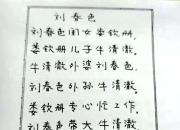 刘春色
刘春色闺女娄钦册,
娄钦册儿子牛清澈,
牛清澈外婆刘春色,
刘春色外孙牛清澈,
娄钦册专心忙工作,
刘春色带大牛清澈。